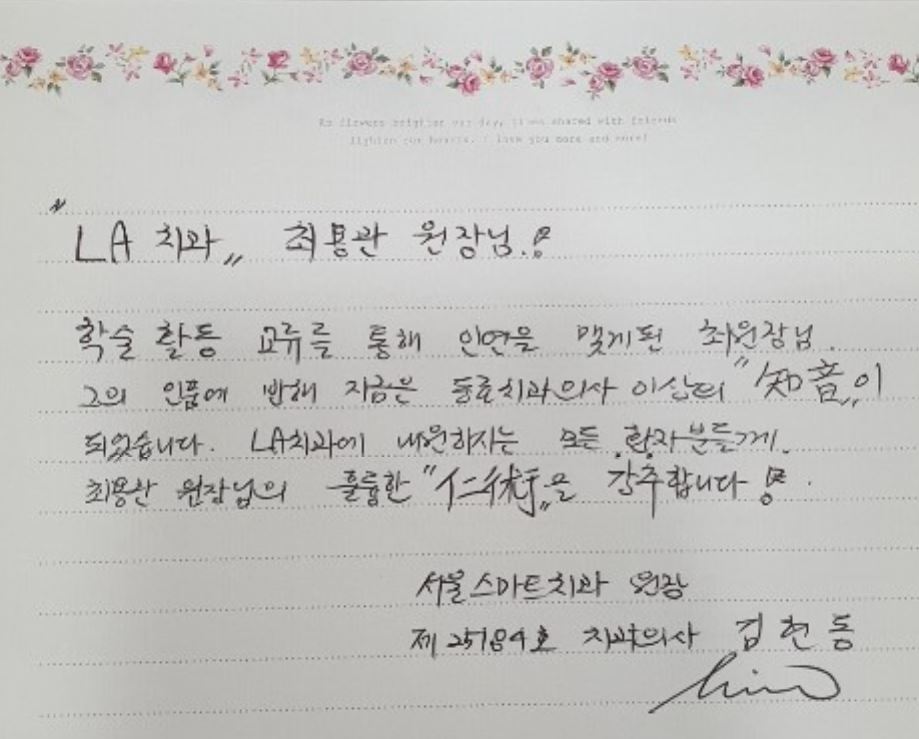 As flowers brighten our day, times shared with friends
lighten our hearts. I love you more and more!
"LA 치과" 최용관 원장님!
학술 활동 교류를 통해 인연을 맺게된 최원장님.
그의 인품에 반해 지금은 동료치과의사 이상의 "知音"이
되었습니다. LA치과에 내원하시는 모든 환자분들게.
최용관 원장님의 훌륭한 "仁術"을 강추합니다!
서울스마트치과 원장
제25184호 치과의사 김현동